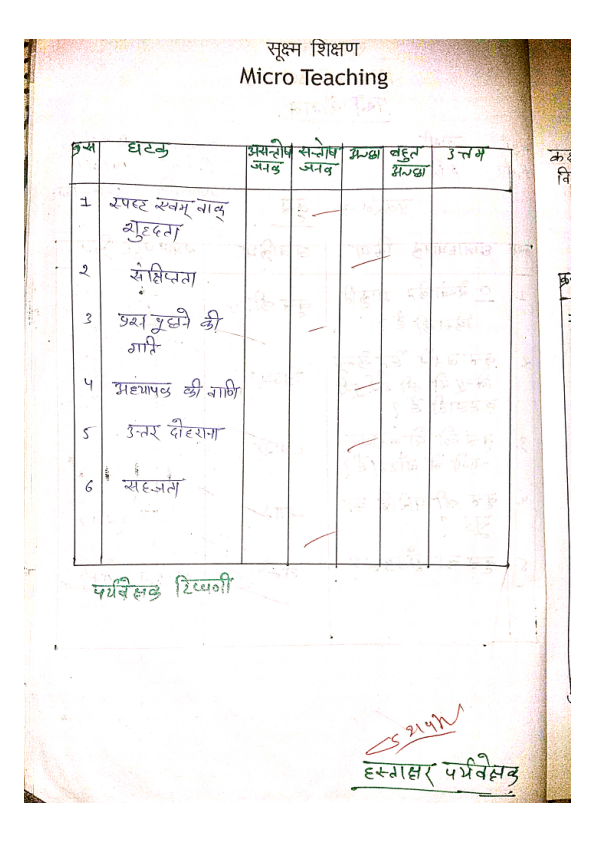 सूक्ष्म शिक्षण
Micro Teaching
क्रम घटक असन्तोष जनक सन्तोष जनक अच्छा बहुत अच्छा उत्तम
1 स्पष्ट एवम् वाक् शुद्धता
२ संक्षिप्तता
3 प्रश्न पूछने की गति
4 अध्यापक की वाणि
5 उत्तर दोहराना
6 सहजता
पर्यवेक्षक टिप्पणी
हस्ताक्षर पर्यवेक्षक